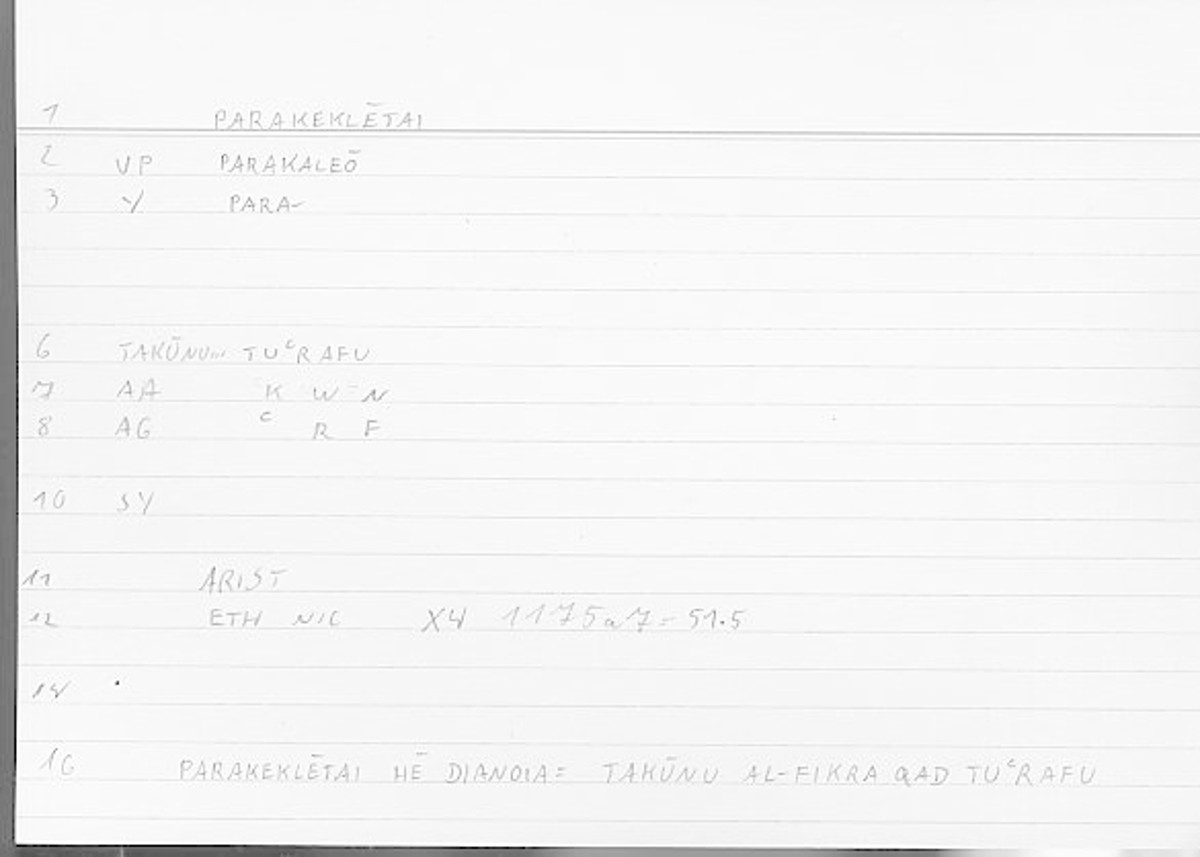 1 PARAKEKLĒTAI
2 VP PARAKALEŌ
3 Y PARA-
6 TAKŪNU... TUʿRAFU
7 AA K W N
8 AG ʿ R F
10 SY
11 ARIST
12 ETH NIC X4 1175a7 = 51.5
14
16 PARAKEKLĒTAI HĒ DIANOIA = TAKŪNU AL-FIKRA QAD TUʿRAFU